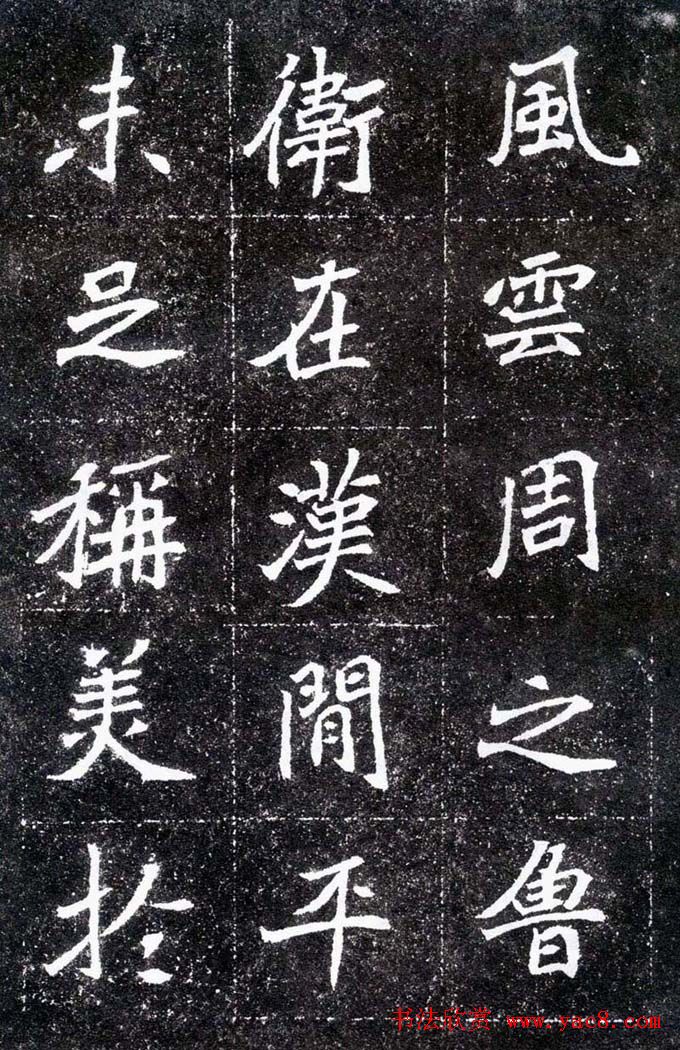 風雲周之魯
衛在漢間平
未足稱美於
书法欣赏 www.yac8.com